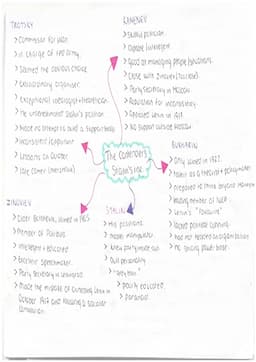 TROTSKY
> Commissar for war.
> in charge of red army.
> Seemed the obvious choice
> Extraordinary organiser
> Exceptional ideologist + theoretician
> He underestimated Stalin's position
> Made no attempts to build a support base
> Inconsistent
> Lessons of October
> late comer (menshevik)
KAMENEV
> Skilful politician
> Capable + intelligent
> Good at managing people/situations.
> Close with Zinoviev
> Party Secretary in Moscow
> Reputation for inconsistency
> Opposed Lenin in 1917
> No support outside Moscow
The Contenders
Stalin's rise
BUKHARIN
> Only joined in
> Talent as a theorist + policymaker
> prepared to think beyond Marxism
> leading member of NEP
> Lenin's "favourite"
> lacked political cunning
> had not factional organisation
> no strong power base.
ZINOVIEV
> Older Bolshevik, joined in 1903
> Member of Politburo
> Intelligent + educated
> Excellent speechmaker.
> Party Secretary in Leningrad.
> Made the mistake of opposing Lenin in
October 1917 and favouring a socialist
coalition.
STALIN
> His positions
> master manipulator
> knew party inside out
> dull personality
> "grey blur"
> poorly educated
> paranoid.